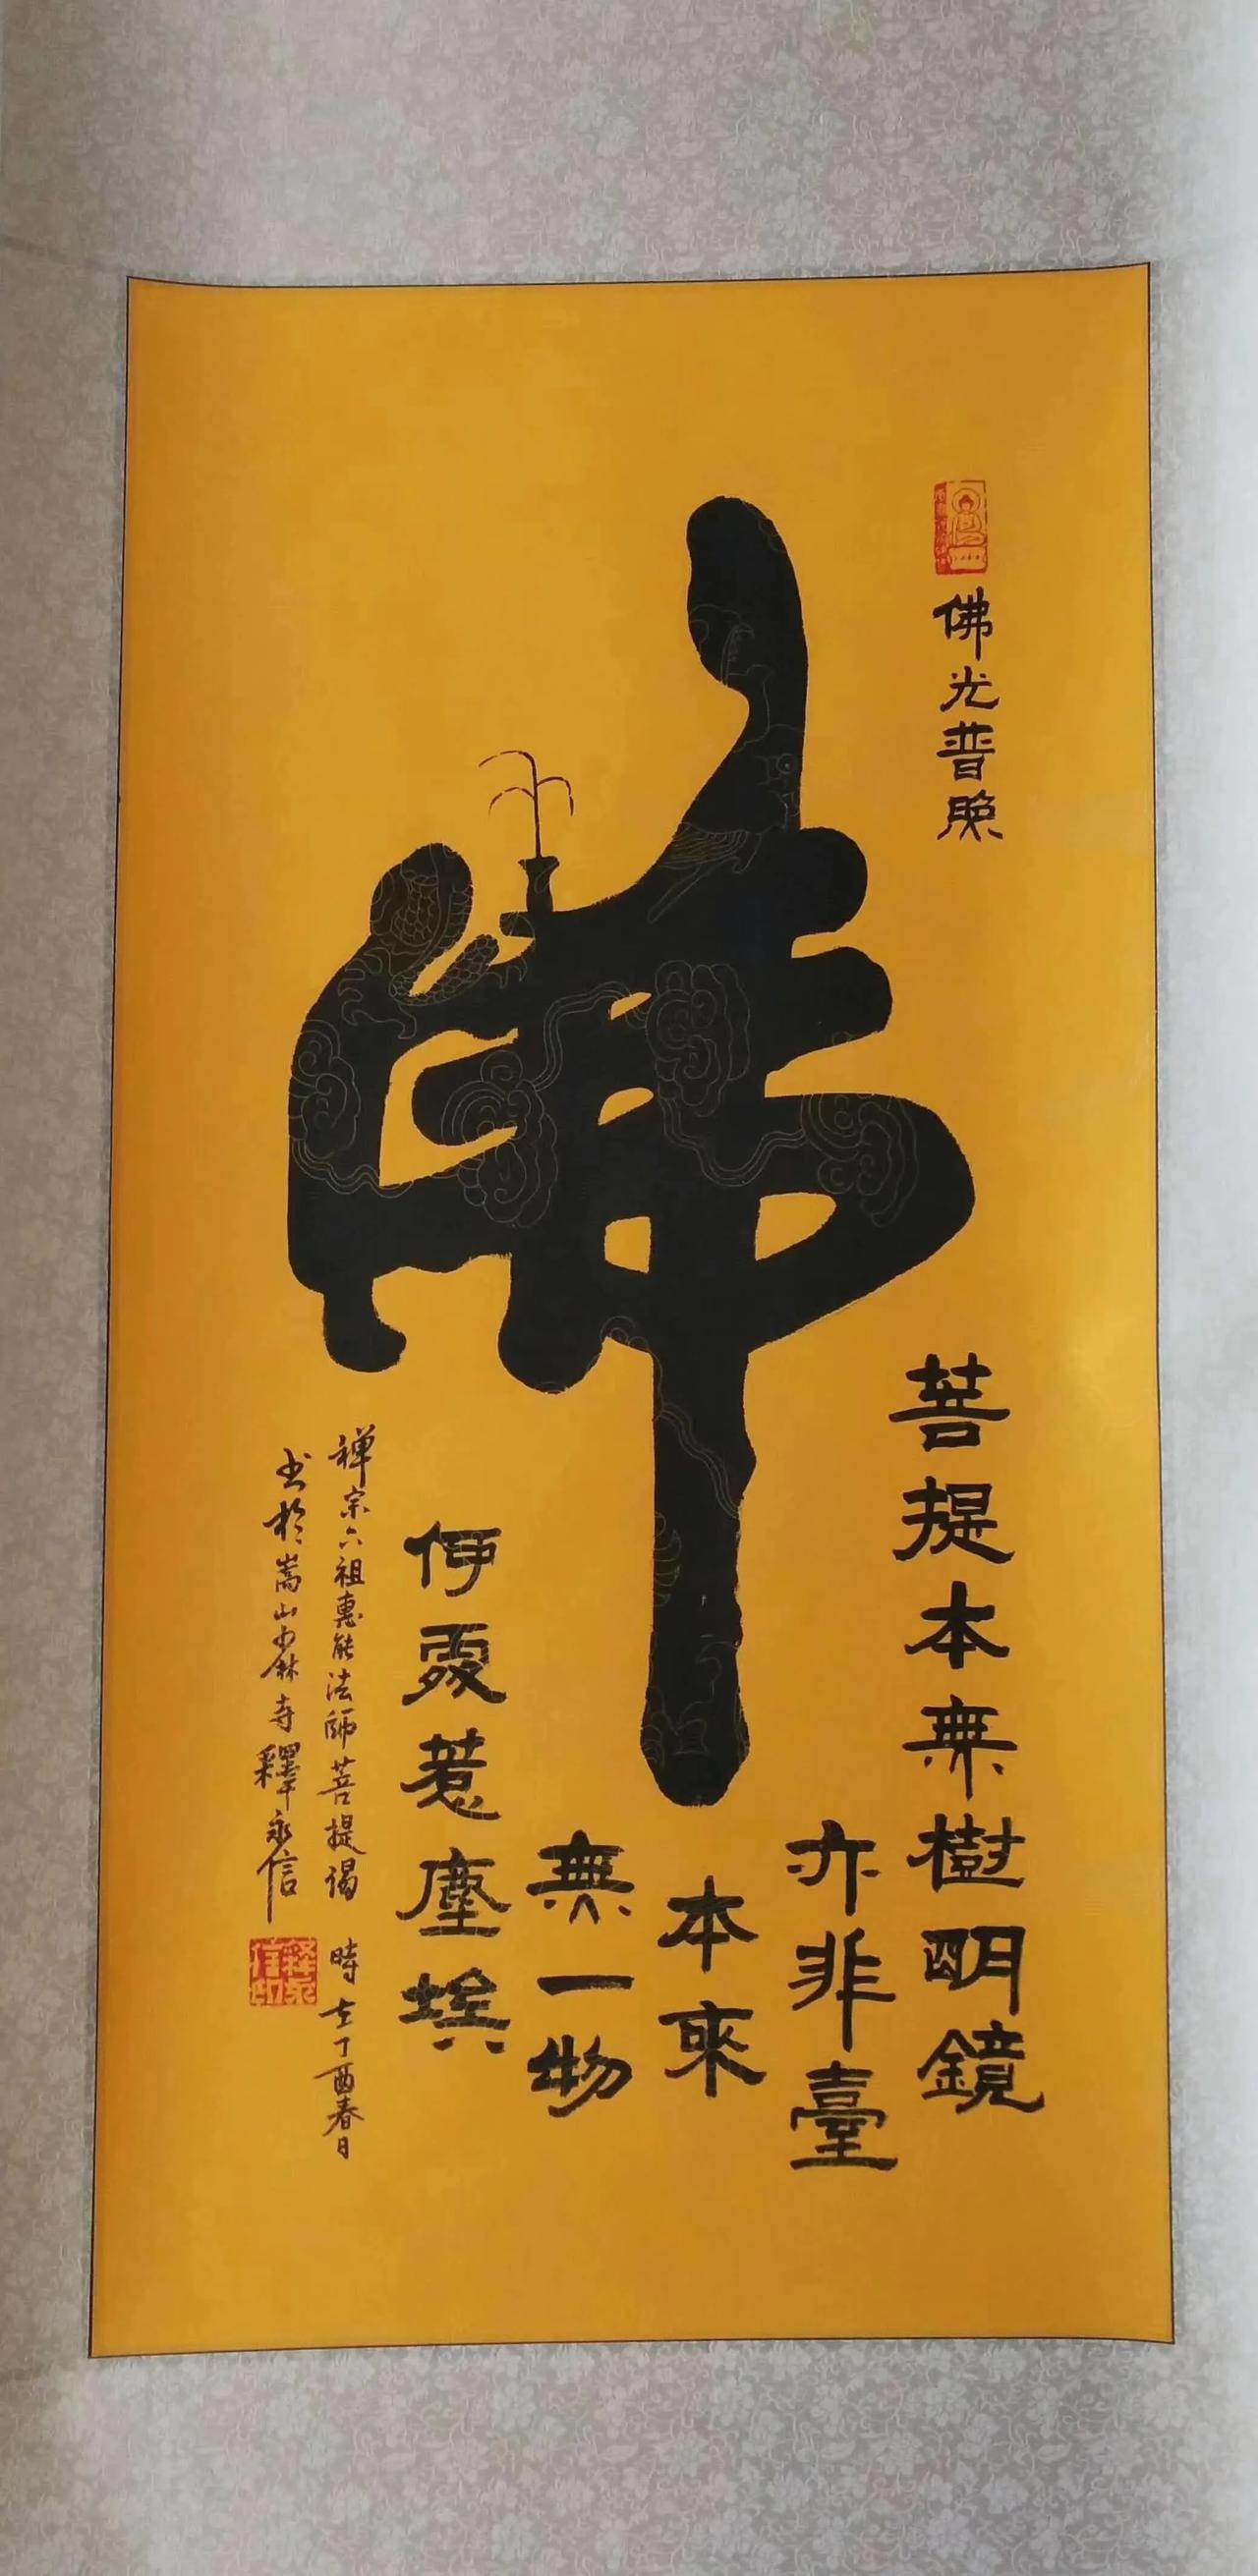 佛光普照
佛
菩提本無樹明鏡
亦非臺
本來
無一物
何處惹塵埃
禅宗六祖惠能法師菩提谒 時在丁酉春日
书於嵩山少林寺釋永信
释永信印